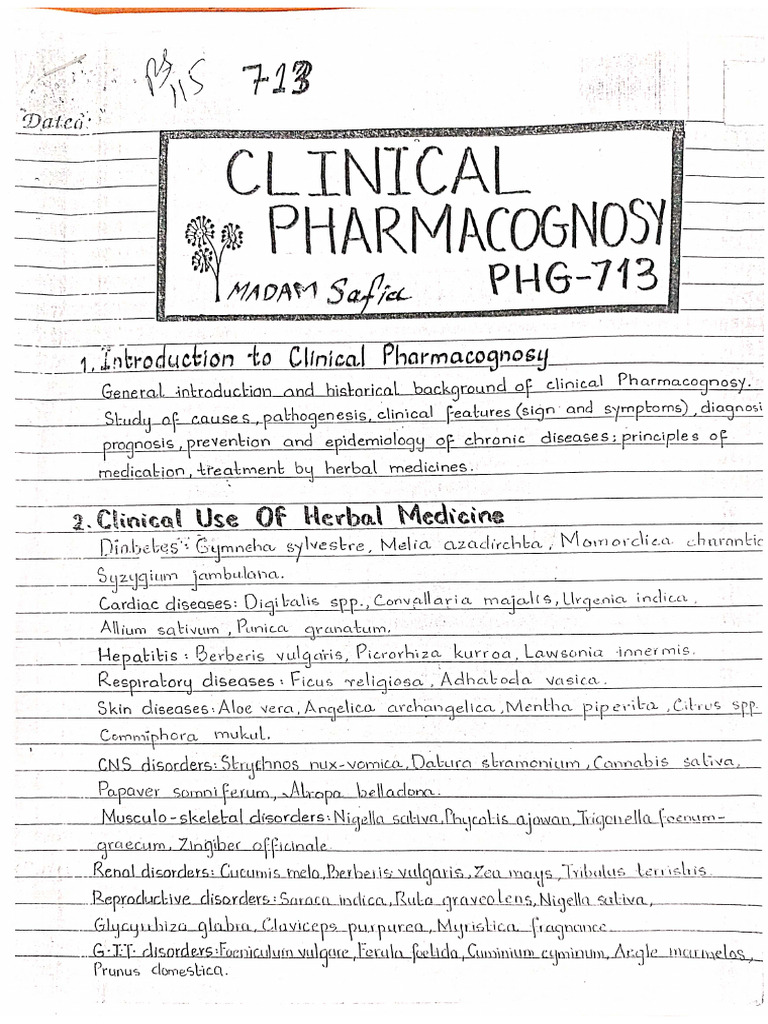 713
Dated:
CLINICAL
PHARMACOGNOSY
MADAM Safia PHG-713
1. Introduction to Clinical Pharmacognosy
General introduction and historical background of clinical Pharmacognosy.
Study of causes, pathogenesis, clinical features (sign and symptoms), diagnosi
prognosis, prevention and epidemiology of chronic diseases; principles of
medication, treatment by herbal medicines.
2. Clinical Use Of Herbal Medicine
Diabetes: Gymneha sylvestre, Melia azadirchta, Momordica charantic
Syzygium jambulana.
Cardiac diseases: Digitalis spp., Convallaria majalis, Urgenia indica,
Allium sativum, Punica granatum.
Hepatitis: Berberis vulgaris, Picrorhiza kurroa, Lawsonia innermis.
Respiratory diseases: Ficus religiosa, Adhatoda vasica.
Skin diseases: Aloe vera, Angelica archangelica, Mentha piperita, Citrus spp.
Commiphora mukul.
CNS disorders: Strychnos nux-vomica, Datura stramonium, Cannabis sativa,
Papaver somniferum, Atropa belladona.
Musculo-skeletal disorders: Nigella sativa, Phycotis ajowan, Trigonella foenum-
graecum, Zingiber officinale
Renal disorders: Cucumis melo, Berberis vulgaris, Zea mays, Tribulus terristris.
Reproductive disorders: Saraca indica, Ruta graveolens, Nigella sativa,
Glycyrrhiza glabra, Claviceps purpurea, Myristica fragnance.
G.I.T. disorders: Foeniculum vulgare, Ferula foetida, Cuminium cyminum, Aegle marmelos,
Prunus domestica.